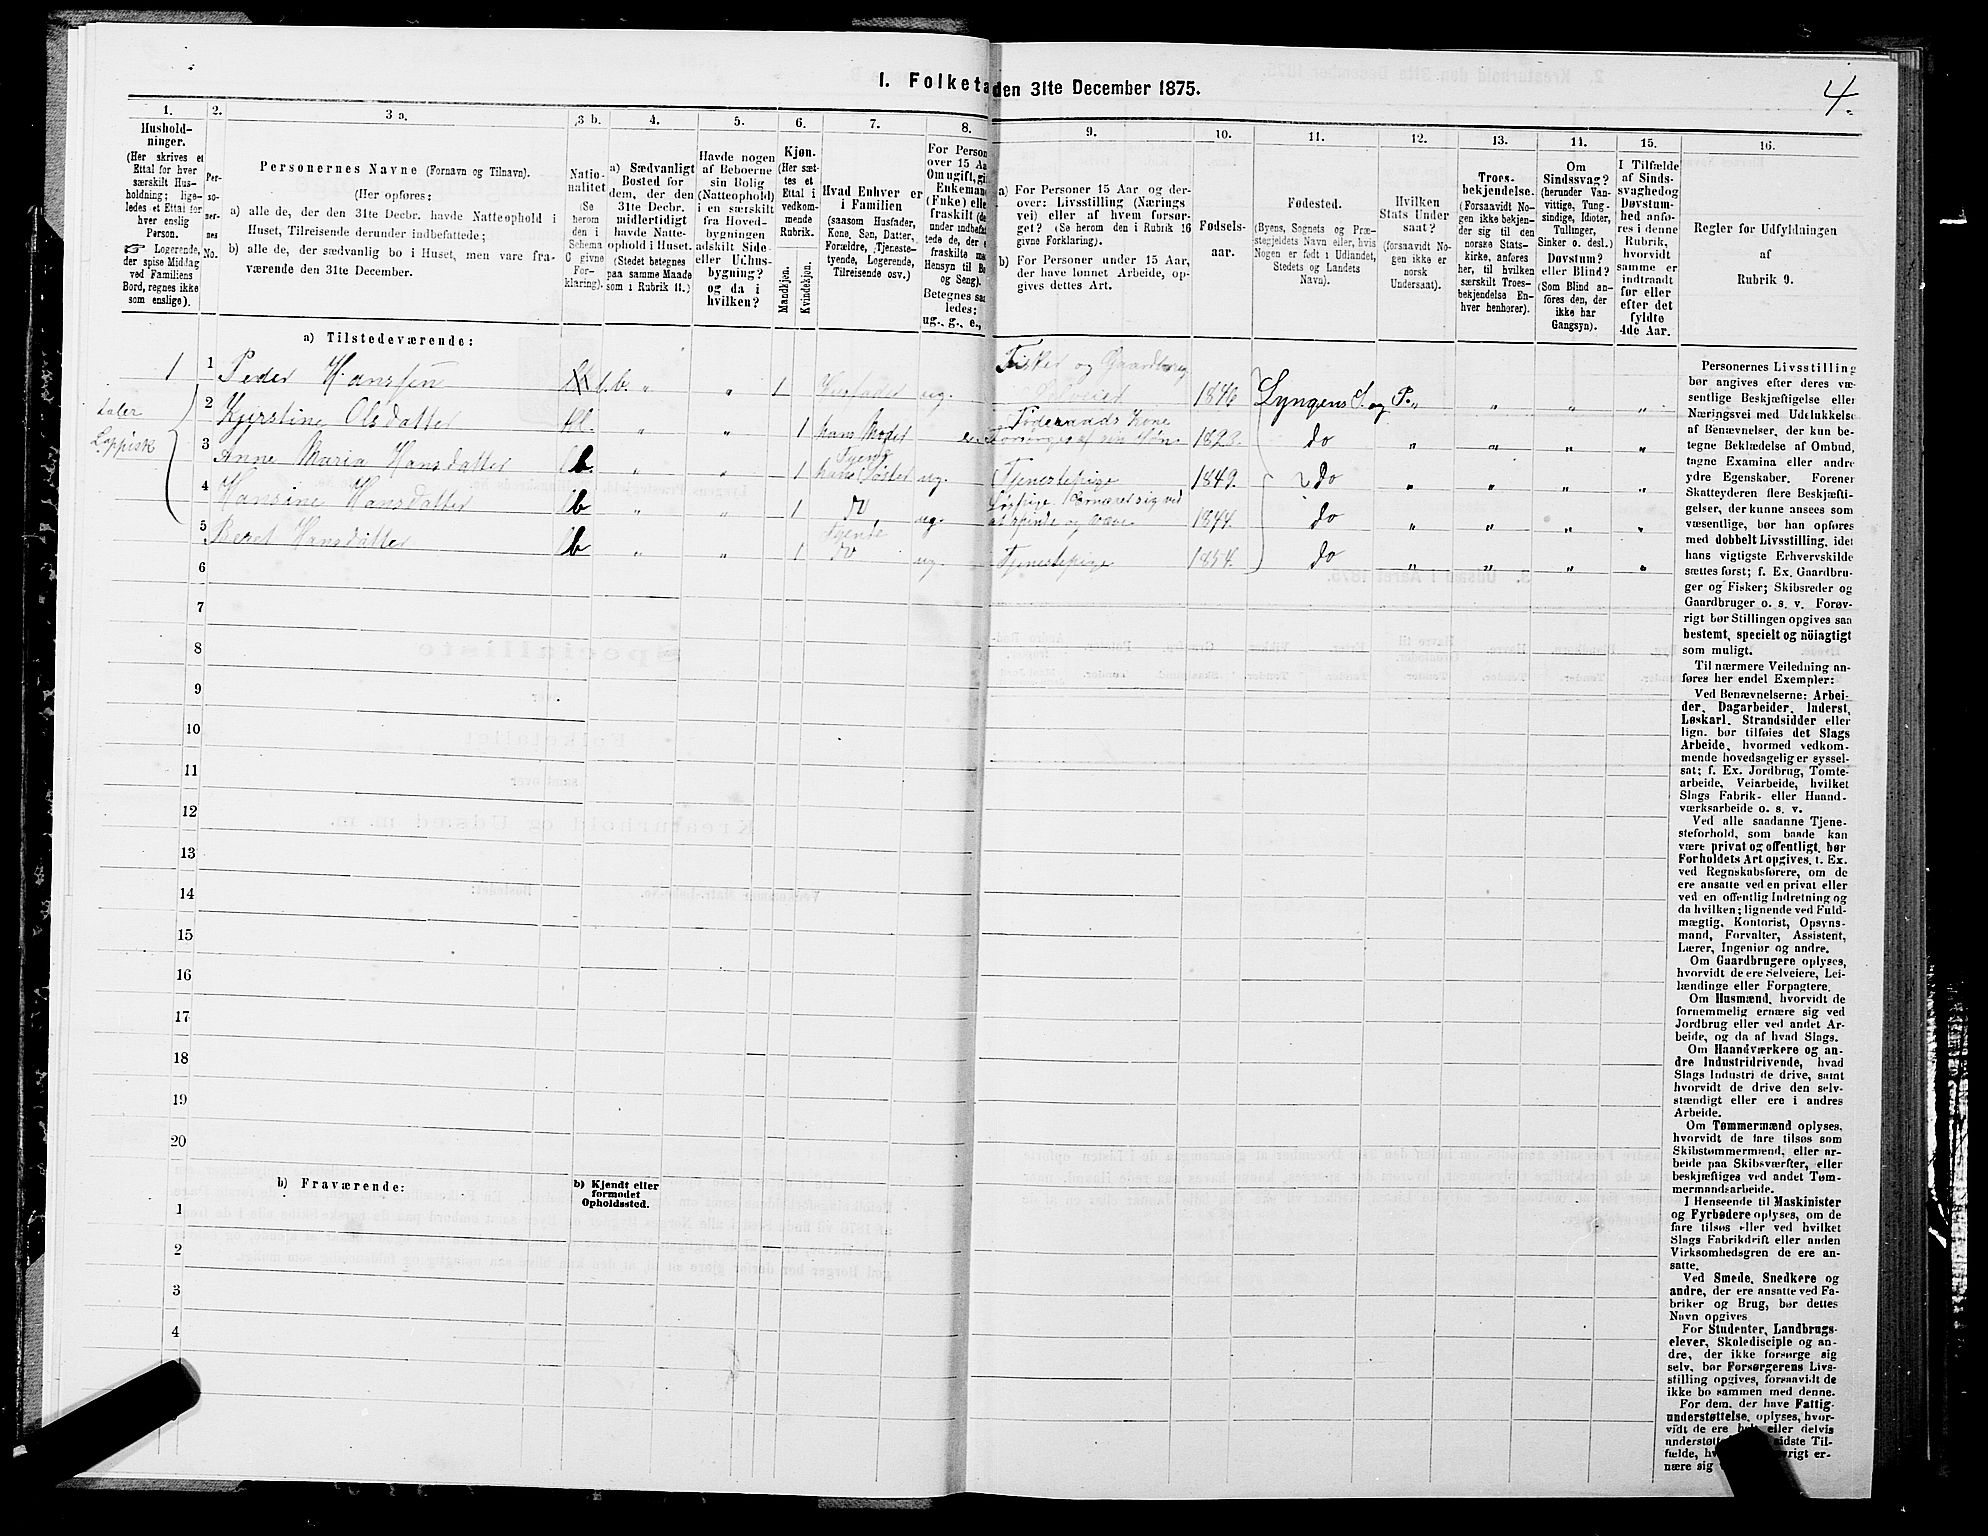 I. Folketa den 31te December 1875.
4.
1.
Hushold-
ninger.
(Her skrives et
Ettal for hver
særskilt Hus-
holdning; lige-
ledes et Ettal for
hver enslig
Person.
Logerende,
der spise Middag
ved Familiens
Bord, regnes ikke
som enslige).
2.
Per-
so-
ner-
nes
No.
3 a.
Personernes Navne (Fornavn og Tilnavn).
(Her opføres:
a) alle de, der den 31te Decbr. havde Natteophold i
Huset, Tilreisende derunder indbefattede;
b) alle de, der sædvanlig bo i Huset, men vare fra-
værende den 31te December.
3 b.
Natio-
nalitet
(Se
herom
den i
Schema
C givne
For-
klaring).
4.
a) Sædvanligt
Bosted for
dem, der den
31te Decbr.
midlertidigt
havde Natte-
ophold i Huset.
(Stedet betegnes
paa samme Maade
som i Rubrik 11.)
5.
Havde nogen
af Beboerne
sin Bolig
(Natteophold)
i en særskilt
fra Hoved-
bygningen
adskilt Side-
eller Udhus-
bygning?
og da i
hvilken?
6.
Kjøn.
(Her sæt-
tes et
Ettal i
vedkom-
mende
Rubrik.
Mandkjøn.
Kvindekjøn.
7.
Hvad Enhver er
i Familien
(saasom Husfader,
Kone, Søn, Datter,
Forældre, Tjeneste-
tyende, Logerende,
Tilreisende osv.)
8.
For Person
over 15 Aa
Om ugift, gi
Enkeman
(Enke) elle
fraskilt (de
under indbefat-
tede de, der e
fraskilte me
Hensyn til Bo
og Seng).
Betegnes saa
ledes:
ug., g., e.,
9.
a) For Personer 15 Aar og der-
over: Livsstilling (Nærings
vei) eller af hvem forsør-
get? (Se herom den i Rubrik 16
givne Forklaring).
b) For Personer under 15 Aar,
der have lønnet Arbeide, op-
gives dettes Art.
10.
Fødsels-
aar.
11.
Fødested.
(Byens, Sognets og Præ-
stegjeldets Navn eller, hvis
Nogen er født i Udlandet,
Stedets og Landets
Navn).
12.
Hvilken
Stats Under
saat?
(forsaavidt No-
gen ikke er
norsk
Undersaat).
13.
Troes-
bekjendelse.
(Forsaavidt No-
gen ikke bekjen-
der sig til den
norske Stats-
kirke, anføres
her, til hvilken
særskilt Troes-
bekjendelse En-
hver henhører).
14.
Om
Sindssvag?
(herunder Van-
vittige, Tung-
sindige, Idioter,
Tullinger,
Sinker o. desl.)
Døvstum?
eller Blind?
(Som Blind an-
føres den, der
ikke har
Gangsyn).
15.
I Tilfælde
af Sinds-
svaghed og
Døvstum-
hed anfø-
res i denne
Rubrik,
hvorvidt
samme er
indtraadt
før eller
efter det
fyldte
4de Aar.
16.
Regler for Udfyldningen
af
Rubrik 9.
a) Tilstedeværende:
1 1 Peder Hansen b. „ „ 1 Husfader ug. Fisker og Gaardbrug Selveier 1846 Lyngens S. og P. „ „ „ „
taler
Lappisk
2 Kjerstine Olsdatter Kl. „ „ 1 hans Moder Føderaads Kone forsørges af sin Søn 1823. do „ „ „ „
3 Anne Maria Hansdatter b. „ „ 1 Tjene hans Søster ug. Tjenestepige 1849. do „ „ „ „
4 Hansine Hansdatter b „ „ 1 ug. Løspige, Ernærer sig ved at spinde og væve 1844. do „ „ „ „
5 Beret Hansdatter b „ „ 1 Tyende ug. Tjenestepige 1854. do „ „ „ „
6
7
8
9
10
11
12
13
14
15
16
17
18
19
20
b) Fraværende:
b) Kjendt eller
formodet
Opholdssted.
1
2
3
4
Personernes Livsstilling
bør angives efter deres væ-
sentlige Beskjæftigelse eller
Næringsvei med Udelukkelse
af Benævnelser, der kun be-
tegne Beklædelse af Ombud,
tagne Examina eller andre
ydre Egenskaber. Forener
Skatteyderen flere Beskjæfti-
gelser, der kunne ansees som
væsentlige, bør han opføres
med dobbelt Livsstilling, idet
hans vigtigste Erhvervskilde
sættes først; f. Ex. Gaardbru-
ger og Fisker; Skibsreder og
Gaardbruger o. s. v. Forøv-
rigt bør Stillingen opgives saa
bestemt, specielt og nöiagtigt
som muligt.
Til nærmere Veiledning an-
føres her endel Exempler:
Ved Benævnelserne: Arbei-
der, Dagarbeider, Inderst,
Løskarl, Strandsidder eller
lign. bør tilføies det Slags
Arbeide, hvormed vedkom-
mende hovedsagelig er syssel-
sat; f. Ex. Jordbrug, Tomte-
arbeide, Veiarbeide, hvilket
Slags Fabrik- eller Haand-
værksarbeide o. s. v.
Ved alle saadanne Tjene-
steforhold, som baade kan
være privat og offentligt, bør
Forholdets Art opgives, t. Ex.
ved Regnskabsførere, om de
ere ansatte ved en privat eller
ved en offentlig Indretning og
da hvilken; lignende ved Fuld-
mægtig, Kontorist, Opsyns-
mand, Forvalter, Assistent,
Lærer, Ingeniør og andre.
Om Gaardbrugere oplyses,
hvorvidt de ere Selveiere, Lei-
lændinge eller Forpagtere.
Om Husmænd, hvorvidt de
fornemmelig ernære sig ved
Jordbrug eller ved andet Ar-
beide, og da af hvad Slags.
Om Haandværkere og an-
dre Industridrivende, hvad
Slags Industri de drive, samt
hvorvidt de drive den selv-
stændigt eller ere i andres
Arbeide.
Om Tømmermænd oplyses,
hvorvidt de fare tilsøs som
Skibstømmermænd, eller ar-
beide paa Skibsværfter, eller
beskjæftiges ved andet Tøm-
mermandsarbeide.
I Henseende til Maskinister
og Fyrbødere oplyses, om de
fare tilsøs eller ved hvilket
Slags Fabrikdrift eller anden
Virksomhedsgren de ere an-
satte.
Ved Smede, Snedkere og
andre, der ere ansatte ved Fa-
briker og Brug, bør dettes
Navn opgives
For Studenter, Landbrugs-
elever, Skoledisciple og an-
dre, der ikke forsørge sig
selv, bør Forsørgerens Livs-
stilling opgives, forsaavidt de
ikke bo sammen med denne.
For dem, der have Fattig-
understøttelse, oplyses, hvor-
vidt de ere eller delvis
sidste Til-
fælde, vrigt er-
nære sig